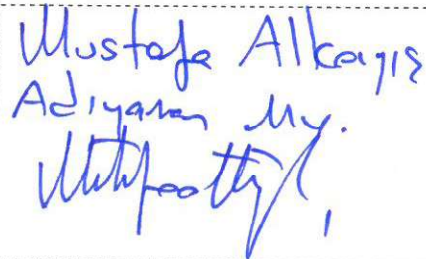 Mustafa Alkayış
Adıyaman My.